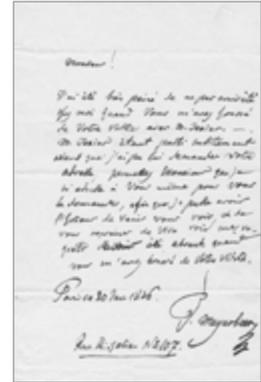 Monsieur!
J'ai été très peiné de ne pas avoir été
chez moi quand Vous m'avez honoré
de Votre Visite avec M.
M. étant parti subitement
avant que j'ai pu lui demander Votre
adresse, permettez Monsieur que je
m'adresse à Vous même pour Vous
la demander, afin que je puisse avoir
l'honneur de venir vous voir, et de
vous exprimer de vive voix mes
regrets été absent quand
vous m'avez honoré de Votre Visite.
Paris ce 20 1846
Meyerbeer
Rue Richelieu No 107.